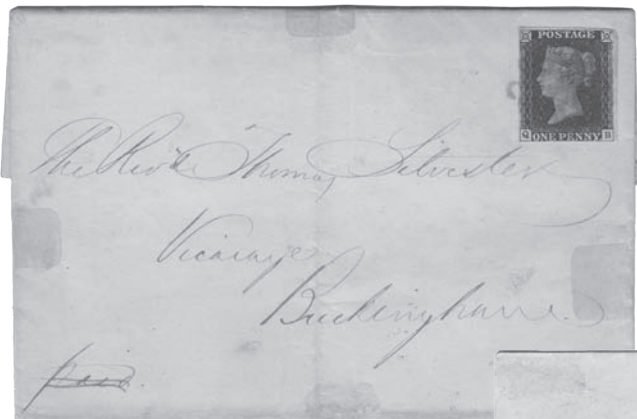 POSTAGE
Q B
ONE PENNY
The Revd. Thomas Silvester
Vicarage
Buckingham.
paid.